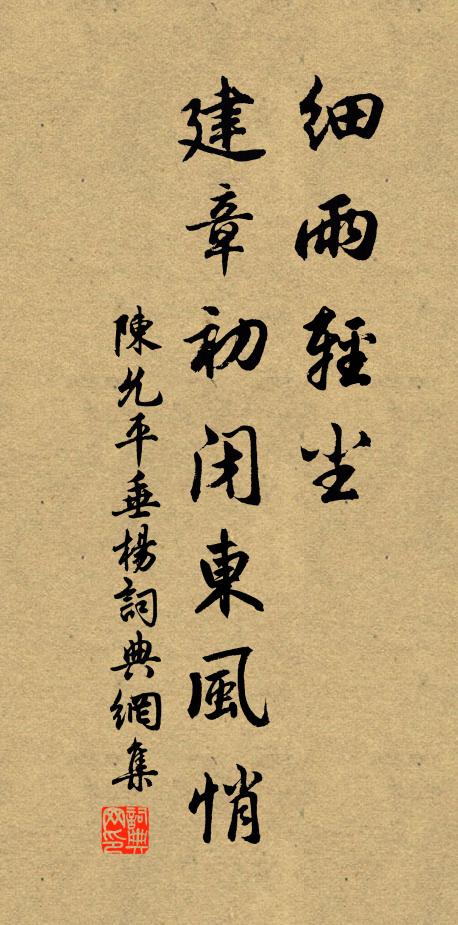 細雨輕尘
建章初闭東風悄
陳允平垂楊詞典網集
詞典
网印